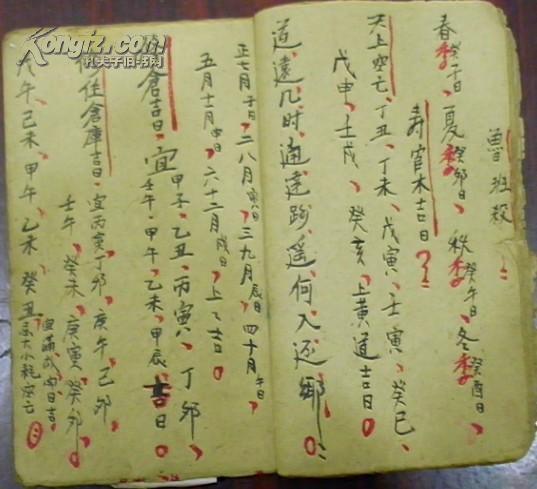 魯班殺
春季癸子日、夏季癸卯日、秋季癸午日、冬季癸酉日
壽官木吉日
天上空亡、丁丑、丁未、戊寅、壬寅、癸巳
戊申、壬戌、癸亥、上黄道吉日
道、遠几时、通達路、遥何入还鄉
正七月子日、二八月寅日、三九月辰日、四十月午日
五月十一月申日、六十二月戌日、上乙吉
倉吉日、宜甲子、乙丑、丙寅、丁卯、
壬午、甲午、乙未、甲辰、吉日
修作倉庫吉日、宜丙寅、丁卯、庚午、己卯、
壬午、癸未、庚寅、癸卯、
戊午、己未、甲午、乙未、癸丑
宜满成开日吉
忌大小耗空亡
Kongfz.com
孔夫子旧书网